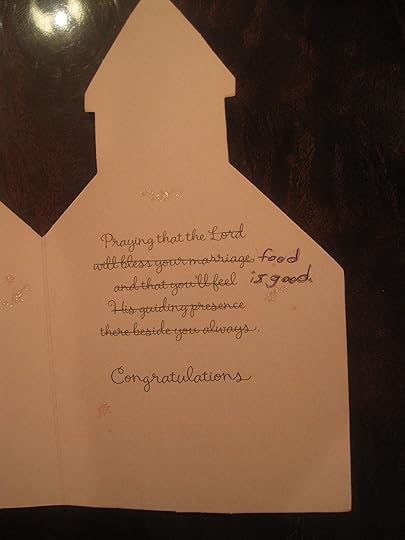 Praying that the Lord
will bless your marriage, food
and that you'll feel is good.
His guiding presence
there beside you always.
Congratulations